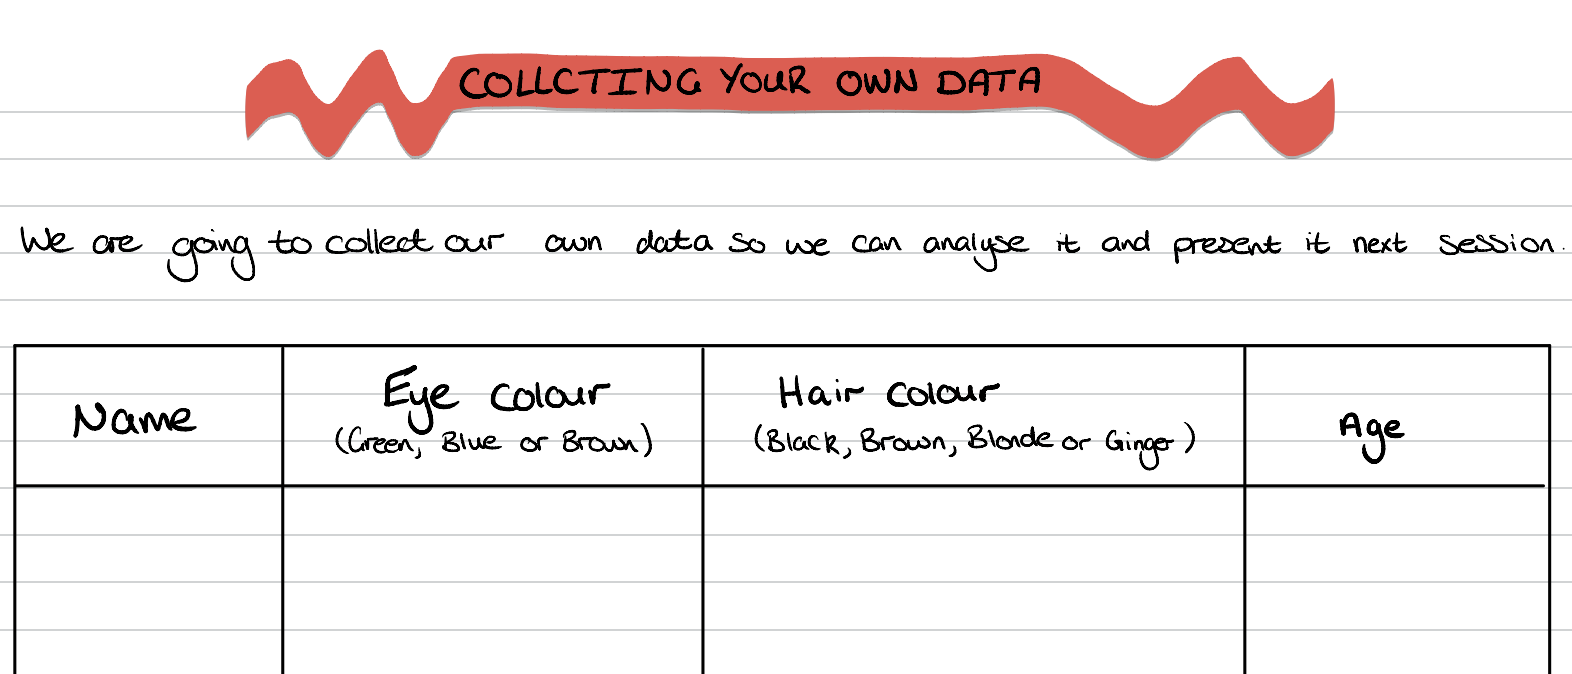 COLLCTING YOUR OWN DATA
We are going to collect our own data so we can analyse it and present it next session.
Name
Eye colour
(Green, Blue or Brown)
Hair colour
(Black, Brown, Blonde or Ginger)
Age